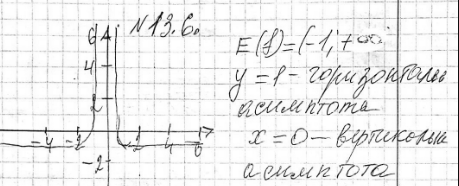 N13.6.
6
4
2
-4 -2 2 4 6
-2
E(f)=(-1;+∞
y=1- горизонтальн
асимптота
x=0- вертикальн
асимптота